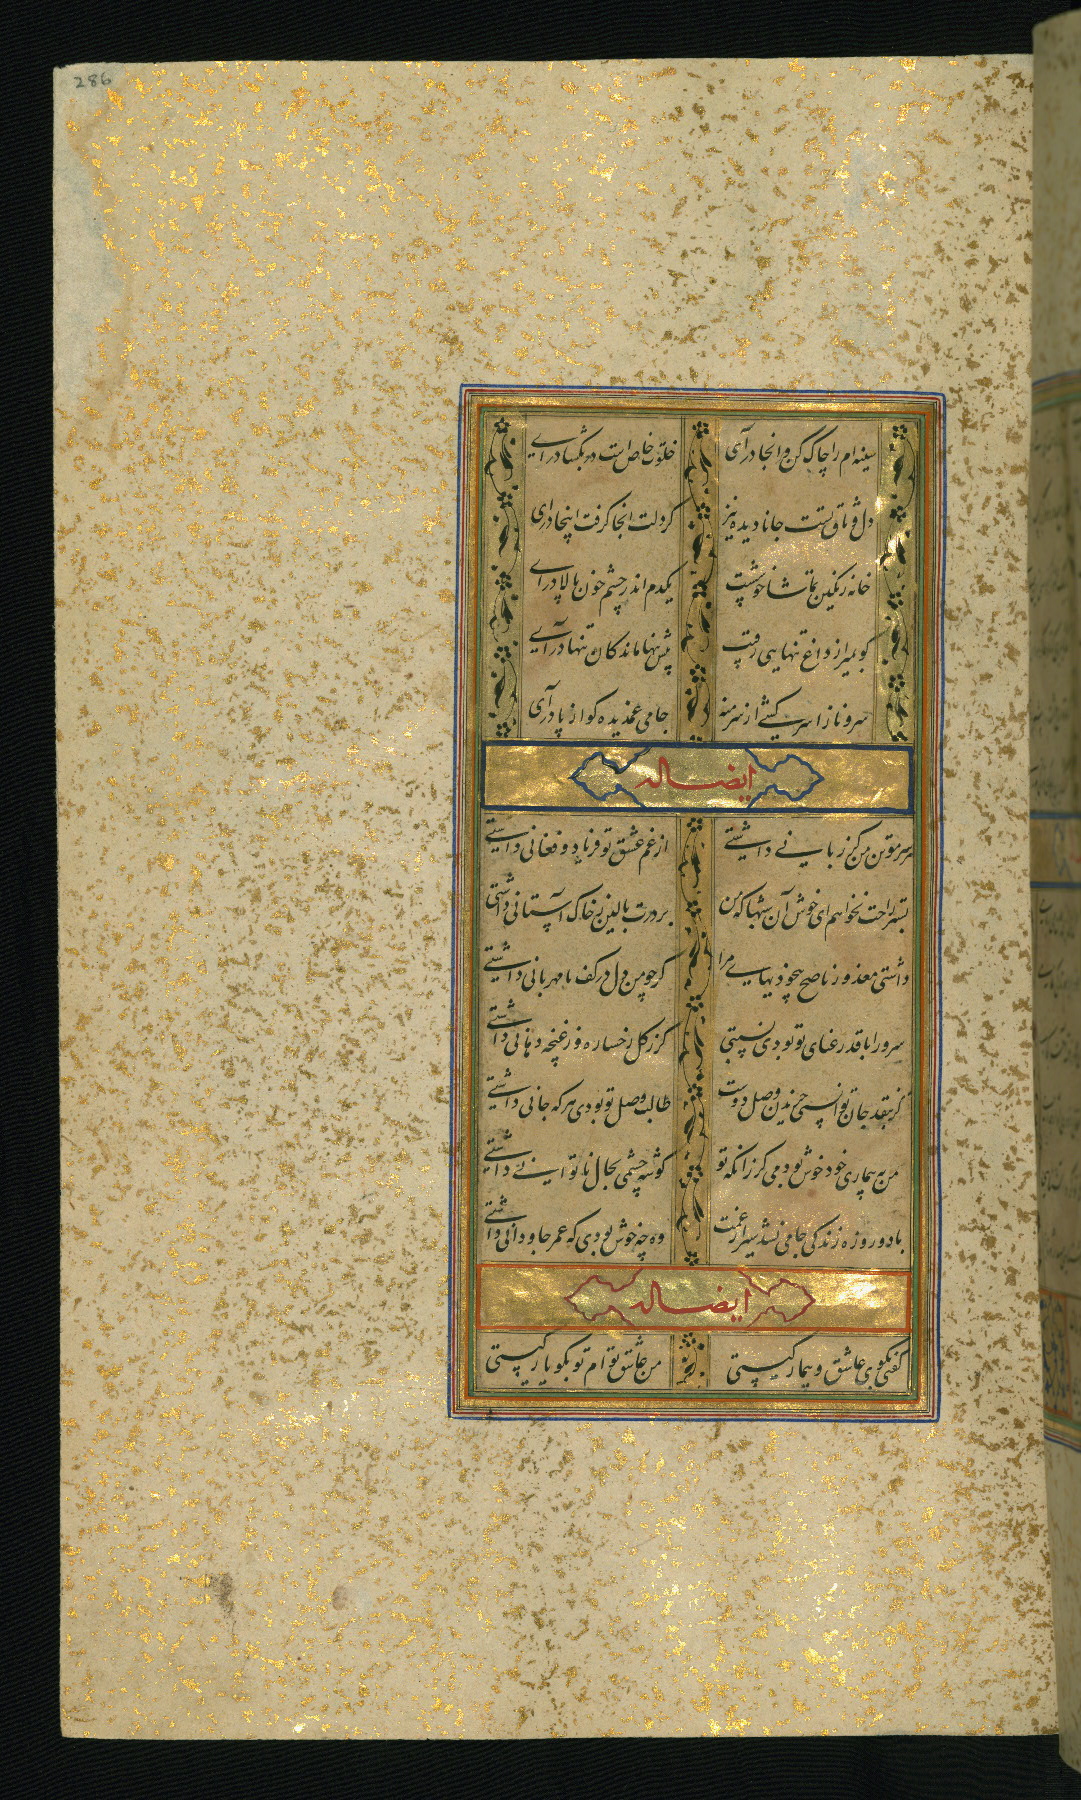 286
سینه‌ام را چاک کن وانجا درآی خلوت خاص است در بکشا درآی
دل وثاق تست جانا دیده نیز گر دلت آنجا گرفت اینجا درآی
خانه رنگین تماشا خوشست یکدم اندر چشم خون پالا درآی
کو بمیر از داغ تنهایی رقیب پیش تنها ماندکان تنها درآی
سرو ناز از سرکشی از سر منه جامی غمدیده کو از پا درآی
ایضا له
هر سر مو بر تن من گر زبانی داشتی از غم عشق تو فریاد و فغانی داشتی
بستر راحت نخواهم ای خوش آن شبها که من بر درت بالین ز خاک آستانی داشتی
داشتی معذور ناصح بیخودیهای مرا گر چو من دل در کف نامهربانی داشتی
سرو را با قد رعنای تو بودی نسبتی گر ز گل رخساره و ز غنچه دهانی داشتی
گر بنقد جان توانستی خریدن وصل دوست طالب وصل تو بودی هر که جانی داشتی
من به بیماری خود خوش بودمی گر زانکه تو گوشه چشمی بحال ناتوانی داشتی
با دو روزه زندگی جامی نشد سیر از غمت وه چه خوش بودی که عمر جاودانی داشتی
ایضا له
گفتی بگوی عاشق و بیمار کیستی من عاشق توام تو بگو یار کیستی